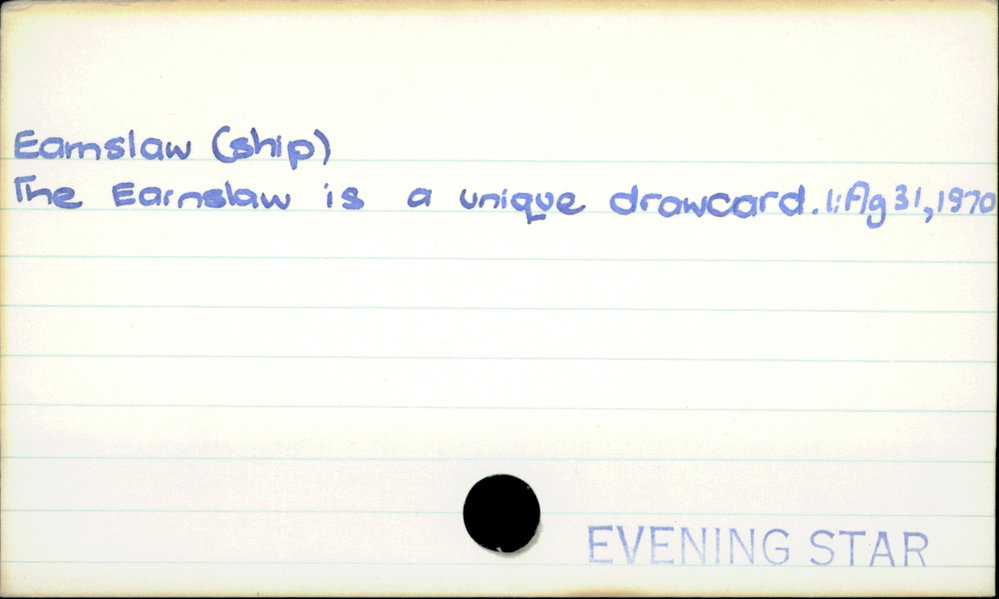 Earnslaw (ship)
The Earnslaw is a unique drawcard. 1:Ag 31, 1970
EVENING STAR